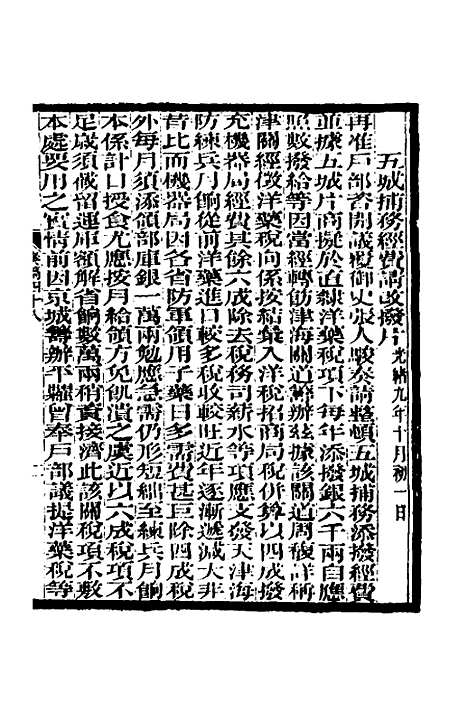 五城捕務經費請改撥片 光緒九年十月初一日
再准戶部咨開議覆御史張人駿奏請整頓五城捕務添撥經費
並據五城片商擬於直隸洋藥稅項下每年添撥銀六千兩自應
照數撥給等因當經轉飭津海關道籌辦茲據該關道周馥詳稱
津關經徵洋藥稅向係按結彙入洋稅招商局稅併算以四成撥
充機器局經費其餘六成除去稅務司薪水等項應支發天津海
防練兵月餉從前洋藥進口較多稅收較旺近年逐漸遞減大非
昔比而機器局因各省防軍領用子藥日多需費甚巨除四成稅
外每月須添領部庫銀一萬兩勉應急需仍形短絀至練兵月餉
本係計口授食尤應按月給領方免飢潰之虞近以六成稅項不
足歲須截留運庫額解省餉數萬兩稍資接濟此該關稅項不敷
本處要用之實情前因京城籌辦平糶曾奉戶部議提洋藥稅等
奏稿四十八